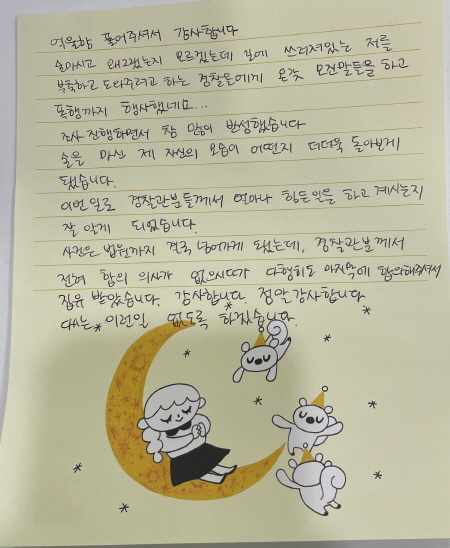 억울함 풀어주셔서 감사합니다
술마시고 왜그랬는지 모르겠는데 길에 쓰러져있는 저를
부축하고 도와주려고 하는 경찰들에게 온갖 모진말들을 하고
폭행까지 행사했네요...
조사 진행하면서 참 많이 반성했습니다
술을 마신 제 자신의 모습이 어떤지 더더욱 돌아보게
됐습니다.
이번 일로 경찰관분들께서 얼마나 힘든일을 하고 계시는지
잘 알게 되었습니다.
사건은 법원까지 결국 넘어가게 됐는데, 경찰관분께서
전혀 합의 의사가 없으시다가 다행히도 마지막에 합의해주셔서
집유 받았습니다. 감사합니다. 정말감사합니다
다시는 이런일 없도록 하겠습니다.